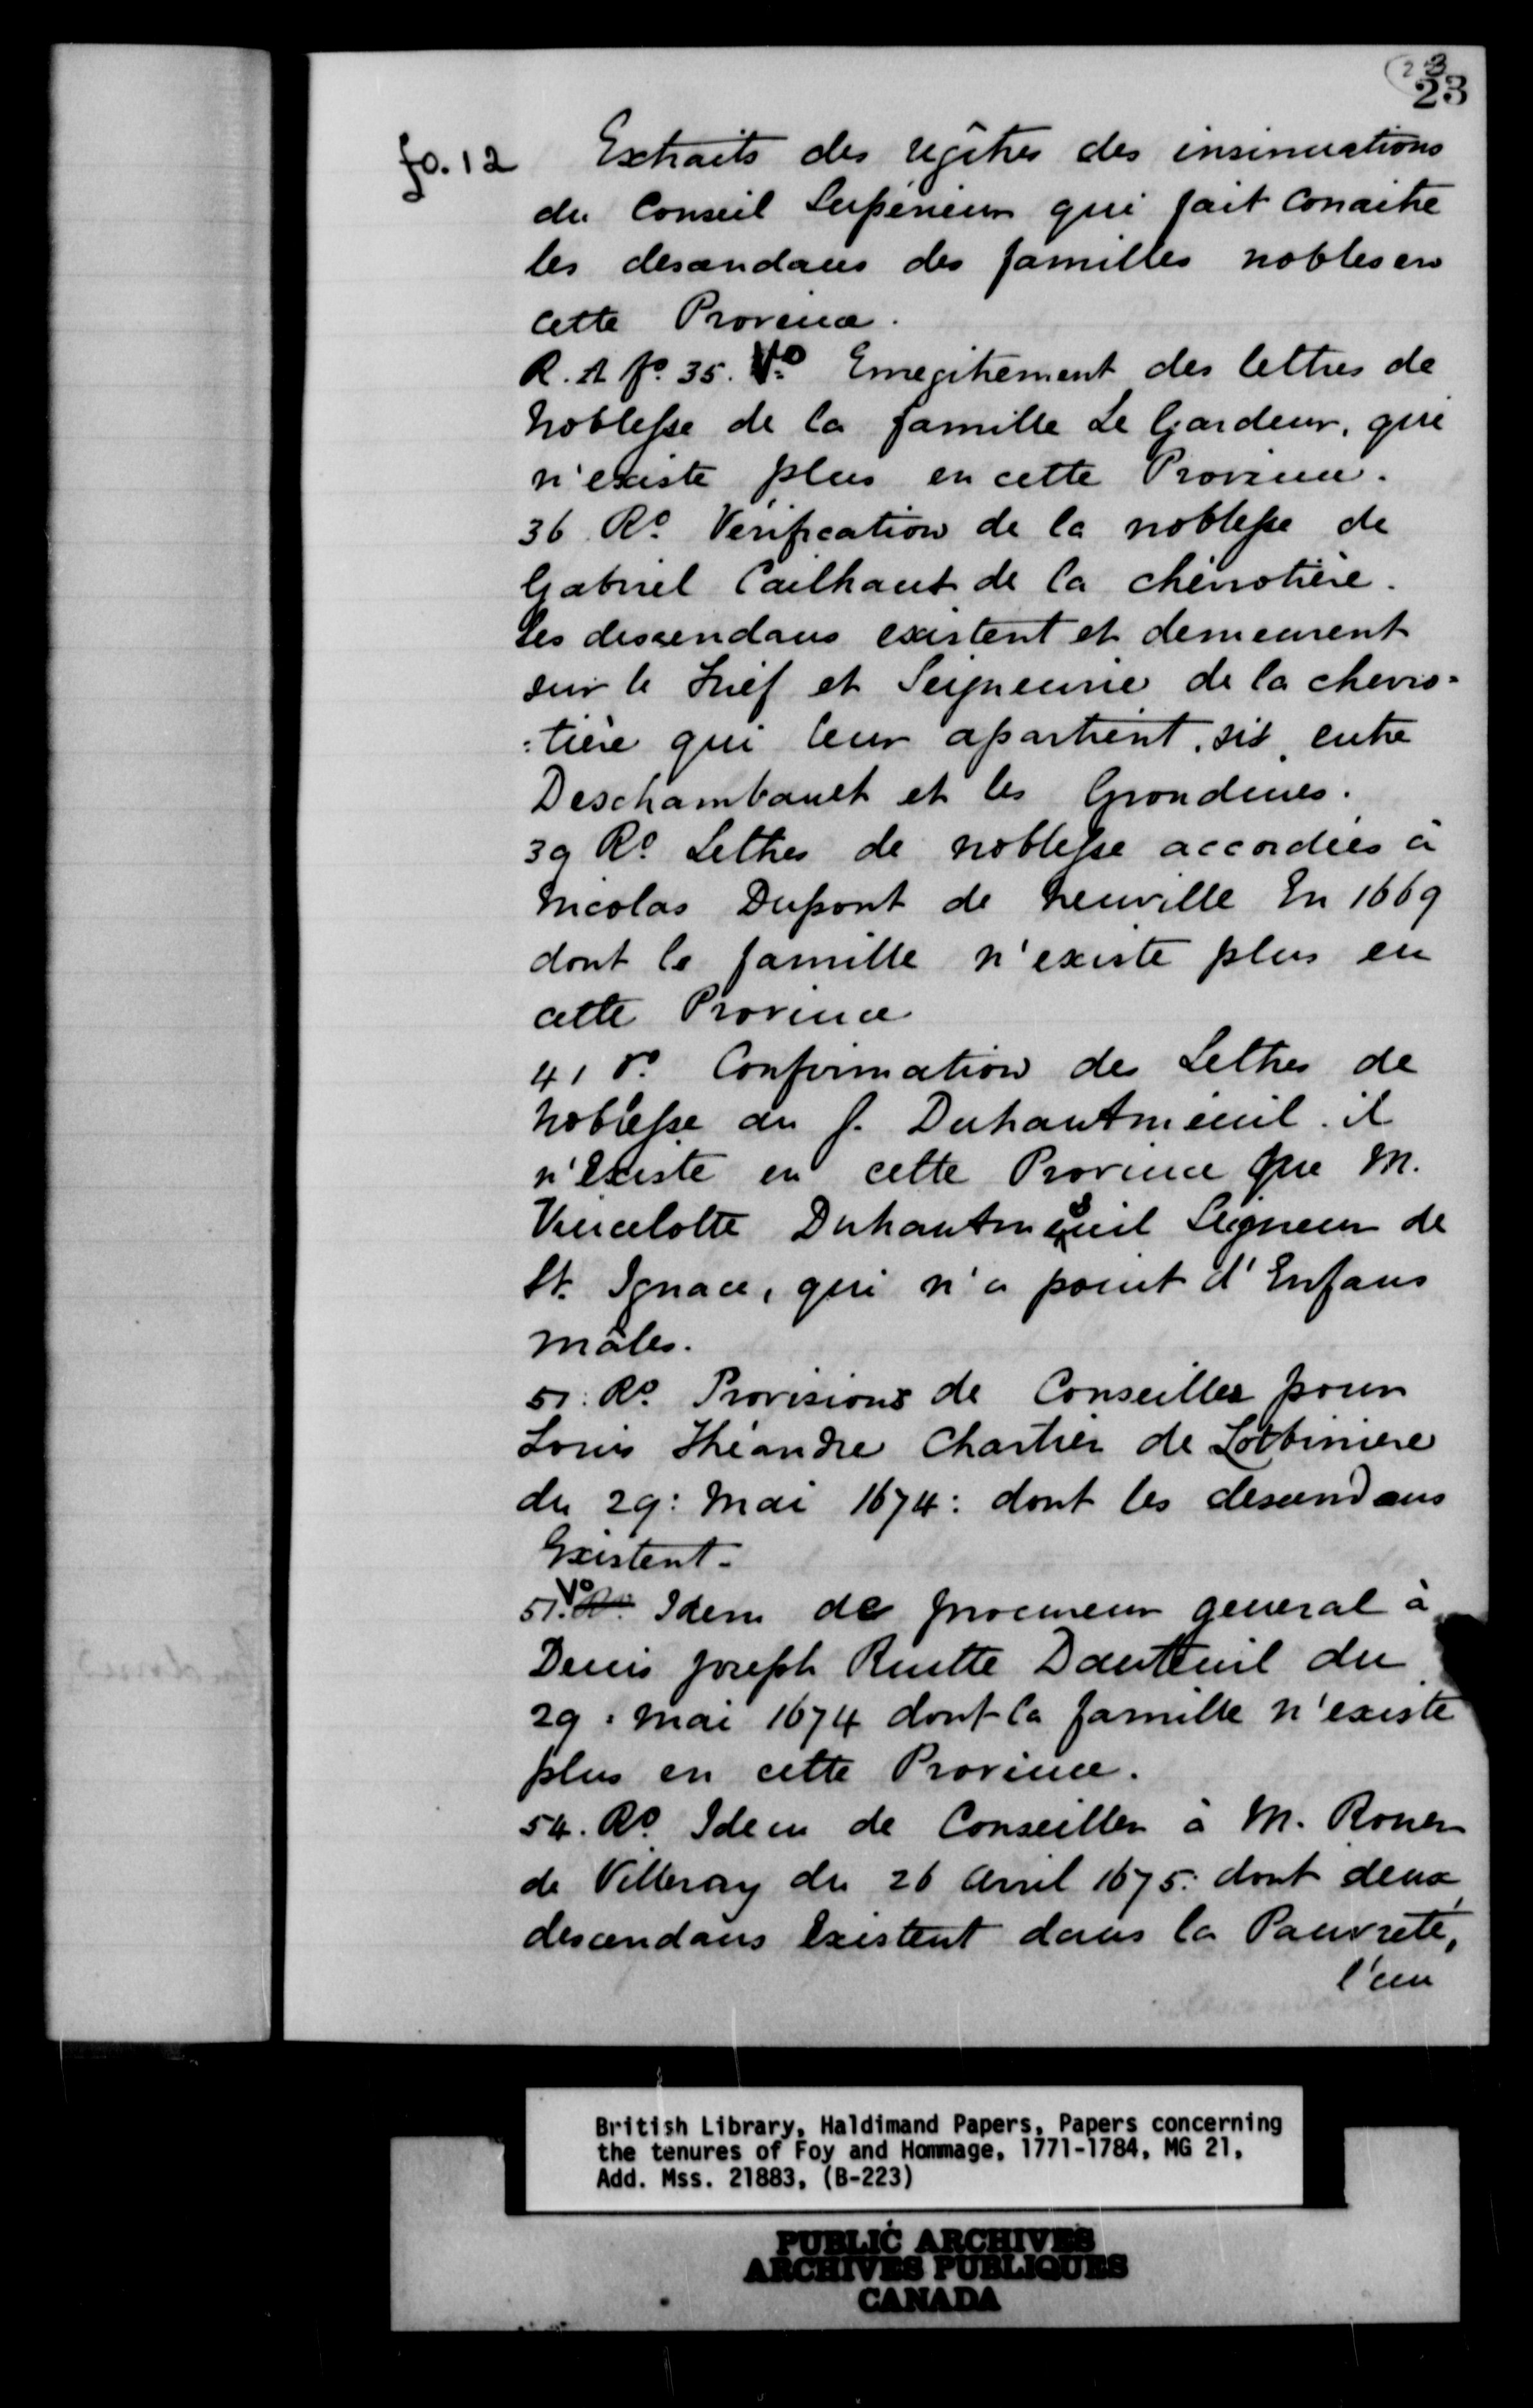 23
23
fo. 12 Extraits des régitres des insinuations
du Conseil Supérieur qui fait Conaitre
les descendans des familles nobles en
cette Province.
R. A fo. 35. Vo. Enregitrement des lettres de
Noblesse de la famille Le Gardeur, qui
n'existe plus en cette Province.
36 Ro. Vérification de la noblesse de
Gabriel Cailhaut de la chévrotière.
Les descendans existent et demeurent
sur le Fief et Seigneurie de la chevro-
:tière qui leur apartient, sis entre
Deschambault et les Grondines.
39 Ro. Lettres de noblesse accordées à
Nicolas Dupont de Neuville En 1669
dont la famille n'existe plus en
cette Province
41 Vo. Confirmation des Lettres de
Noblesse du S. Duhautmenil. il
n'Existe en cette Province que M.
Vincelotte Duhautmesnil Seigneur de
St. Ignace, qui n'a point d'Enfans
mâles.
51: Ro. Provisions de Conseiller pour
Louis Théandre Chartier de Lotbiniere
du 29: Mai 1674: dont les descendans
Existent.
51. Vo Ro. Idem de procureur general à
Denis Joseph Ruette Dauteuil du
29: Mai 1674 dont la famille n'existe
plus en cette Province.
54. Ro. Idem de Conseiller à M. Rouer
de Villeray du 26 Avril 1675: dont deux
descendans Existent dans la Pauvreté,
l'un
British Library, Haldimand Papers, Papers concerning
the tenures of Foy and Hommage, 1771-1784, MG 21,
Add. Mss. 21883, (B-223)
PUBLIC ARCHIVES
ARCHIVES PUBLIQUES
CANADA